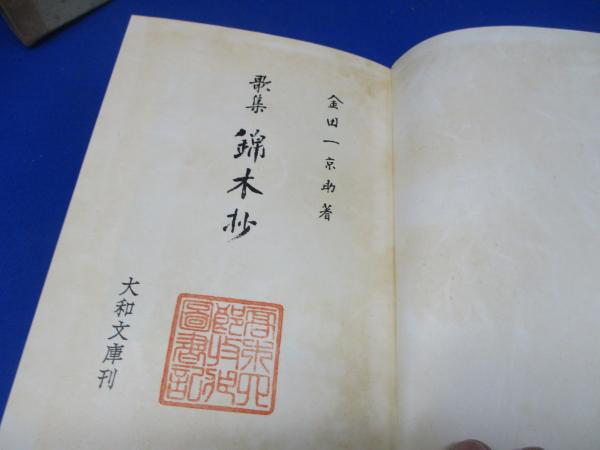 金田一京助著
歌集 錦木抄
大和文庫刊